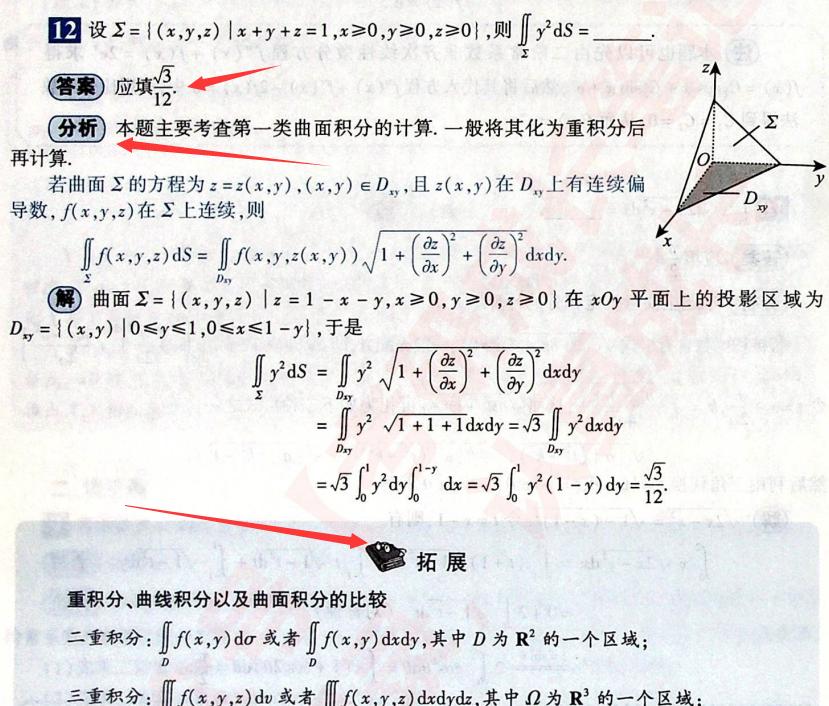 12 设 Σ={(x,y,z)|x+y+z=1,x≥0,y≥0,z≥0},则 ∬_Σ y²dS=______.
答案 应填 √3/12.
分析 本题主要考查第一类曲面积分的计算.一般将其化为重积分后
再计算.
若曲面 Σ 的方程为 z=z(x,y),(x,y)∈D_xy,且 z(x,y)在 D_xy 上有连续偏
导数,f(x,y,z)在 Σ 上连续,则
∬_Σ f(x,y,z)dS=∬_Dxy f(x,y,z(x,y))√(1+(∂z/∂x)²+(∂z/∂y)²)dxdy.
z
Σ
O
y
D_xy
x
解 曲面 Σ={(x,y,z)|z=1-x-y,x≥0,y≥0,z≥0}在 xOy 平面上的投影区域为
D_xy={(x,y)|0≤y≤1,0≤x≤1-y},于是
∬_Σ y²dS=∬_Dxy y²√(1+(∂z/∂x)²+(∂z/∂y)²)dxdy
=∬_Dxy y²√(1+1+1)dxdy=√3∬_Dxy y²dxdy
=√3∫₀¹y²dy∫₀^(1-y)dx=√3∫₀¹y²(1-y)dy=√3/12.
拓展
重积分、曲线积分以及曲面积分的比较
二重积分:∬_D f(x,y)dσ 或者 ∬_D f(x,y)dxdy,其中 D 为 R² 的一个区域;
三重积分:∭f(x,y,z)dv 或者 ∭f(x,y,z)dxdydz,其中 Ω 为 R³ 的一个区域;